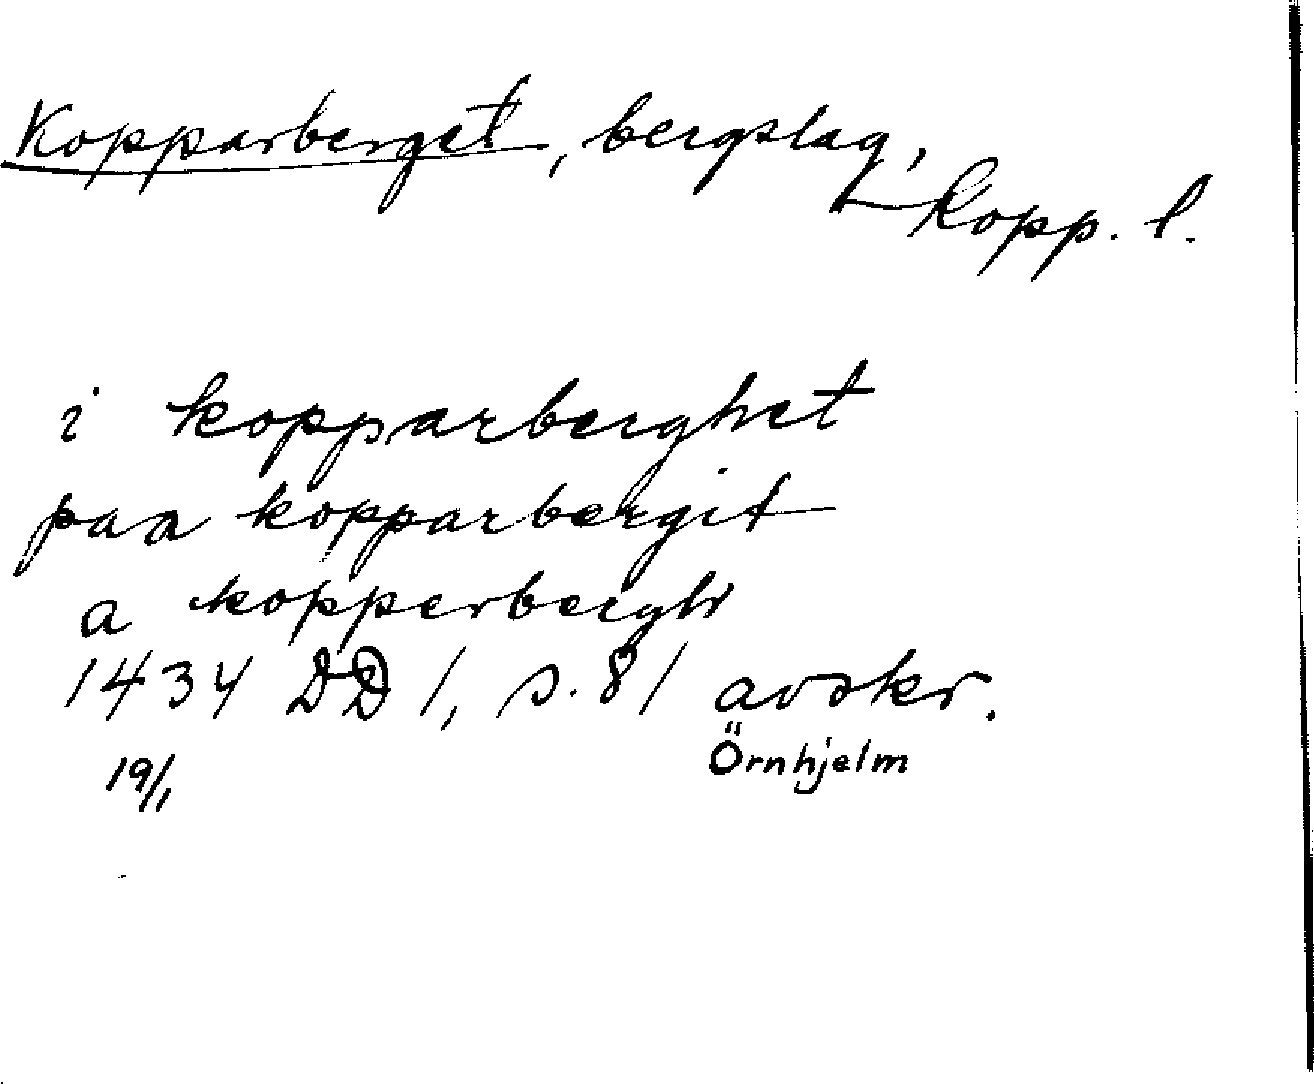 Kopparberget, bergslag,
Kopp. l.
i kopparberghet
paa kopparbergit
a kopperbergh
1434 DD 1, s. 81 avskr.
Örnhjelm
19/1